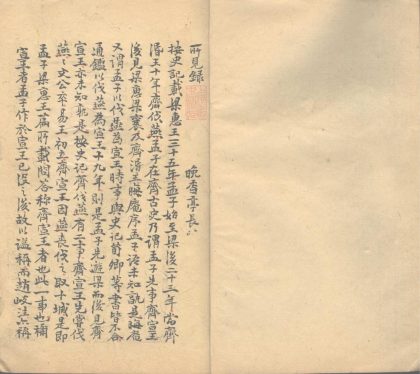 所見錄
晚香亭長
按史記載梁惠王三十五年孟子始至梁後二十三年當齊
湣王十年齊伐燕孟子在齊古史乃謂孟子先事齊宣王
後見梁惠梁襄及齊湣王晦庵序孟子語未知孰是海
又謂孟子以伐燕為宣王時事與史記荀卿等書皆不合
通鑑以伐燕為宣王十九年則是孟子先遊梁而後見齊
宣王亦未知孰是按史記齊伐燕有二事齊宣王先嘗伐
燕燕文公卒易王初立齊宣王因燕喪伐之取十城是即
孟子梁惠王篇所載問答稱齊宣王者也此一事也
宣王者孟子作於宣王已沒之後故以謚稱而趙岐注亦稱